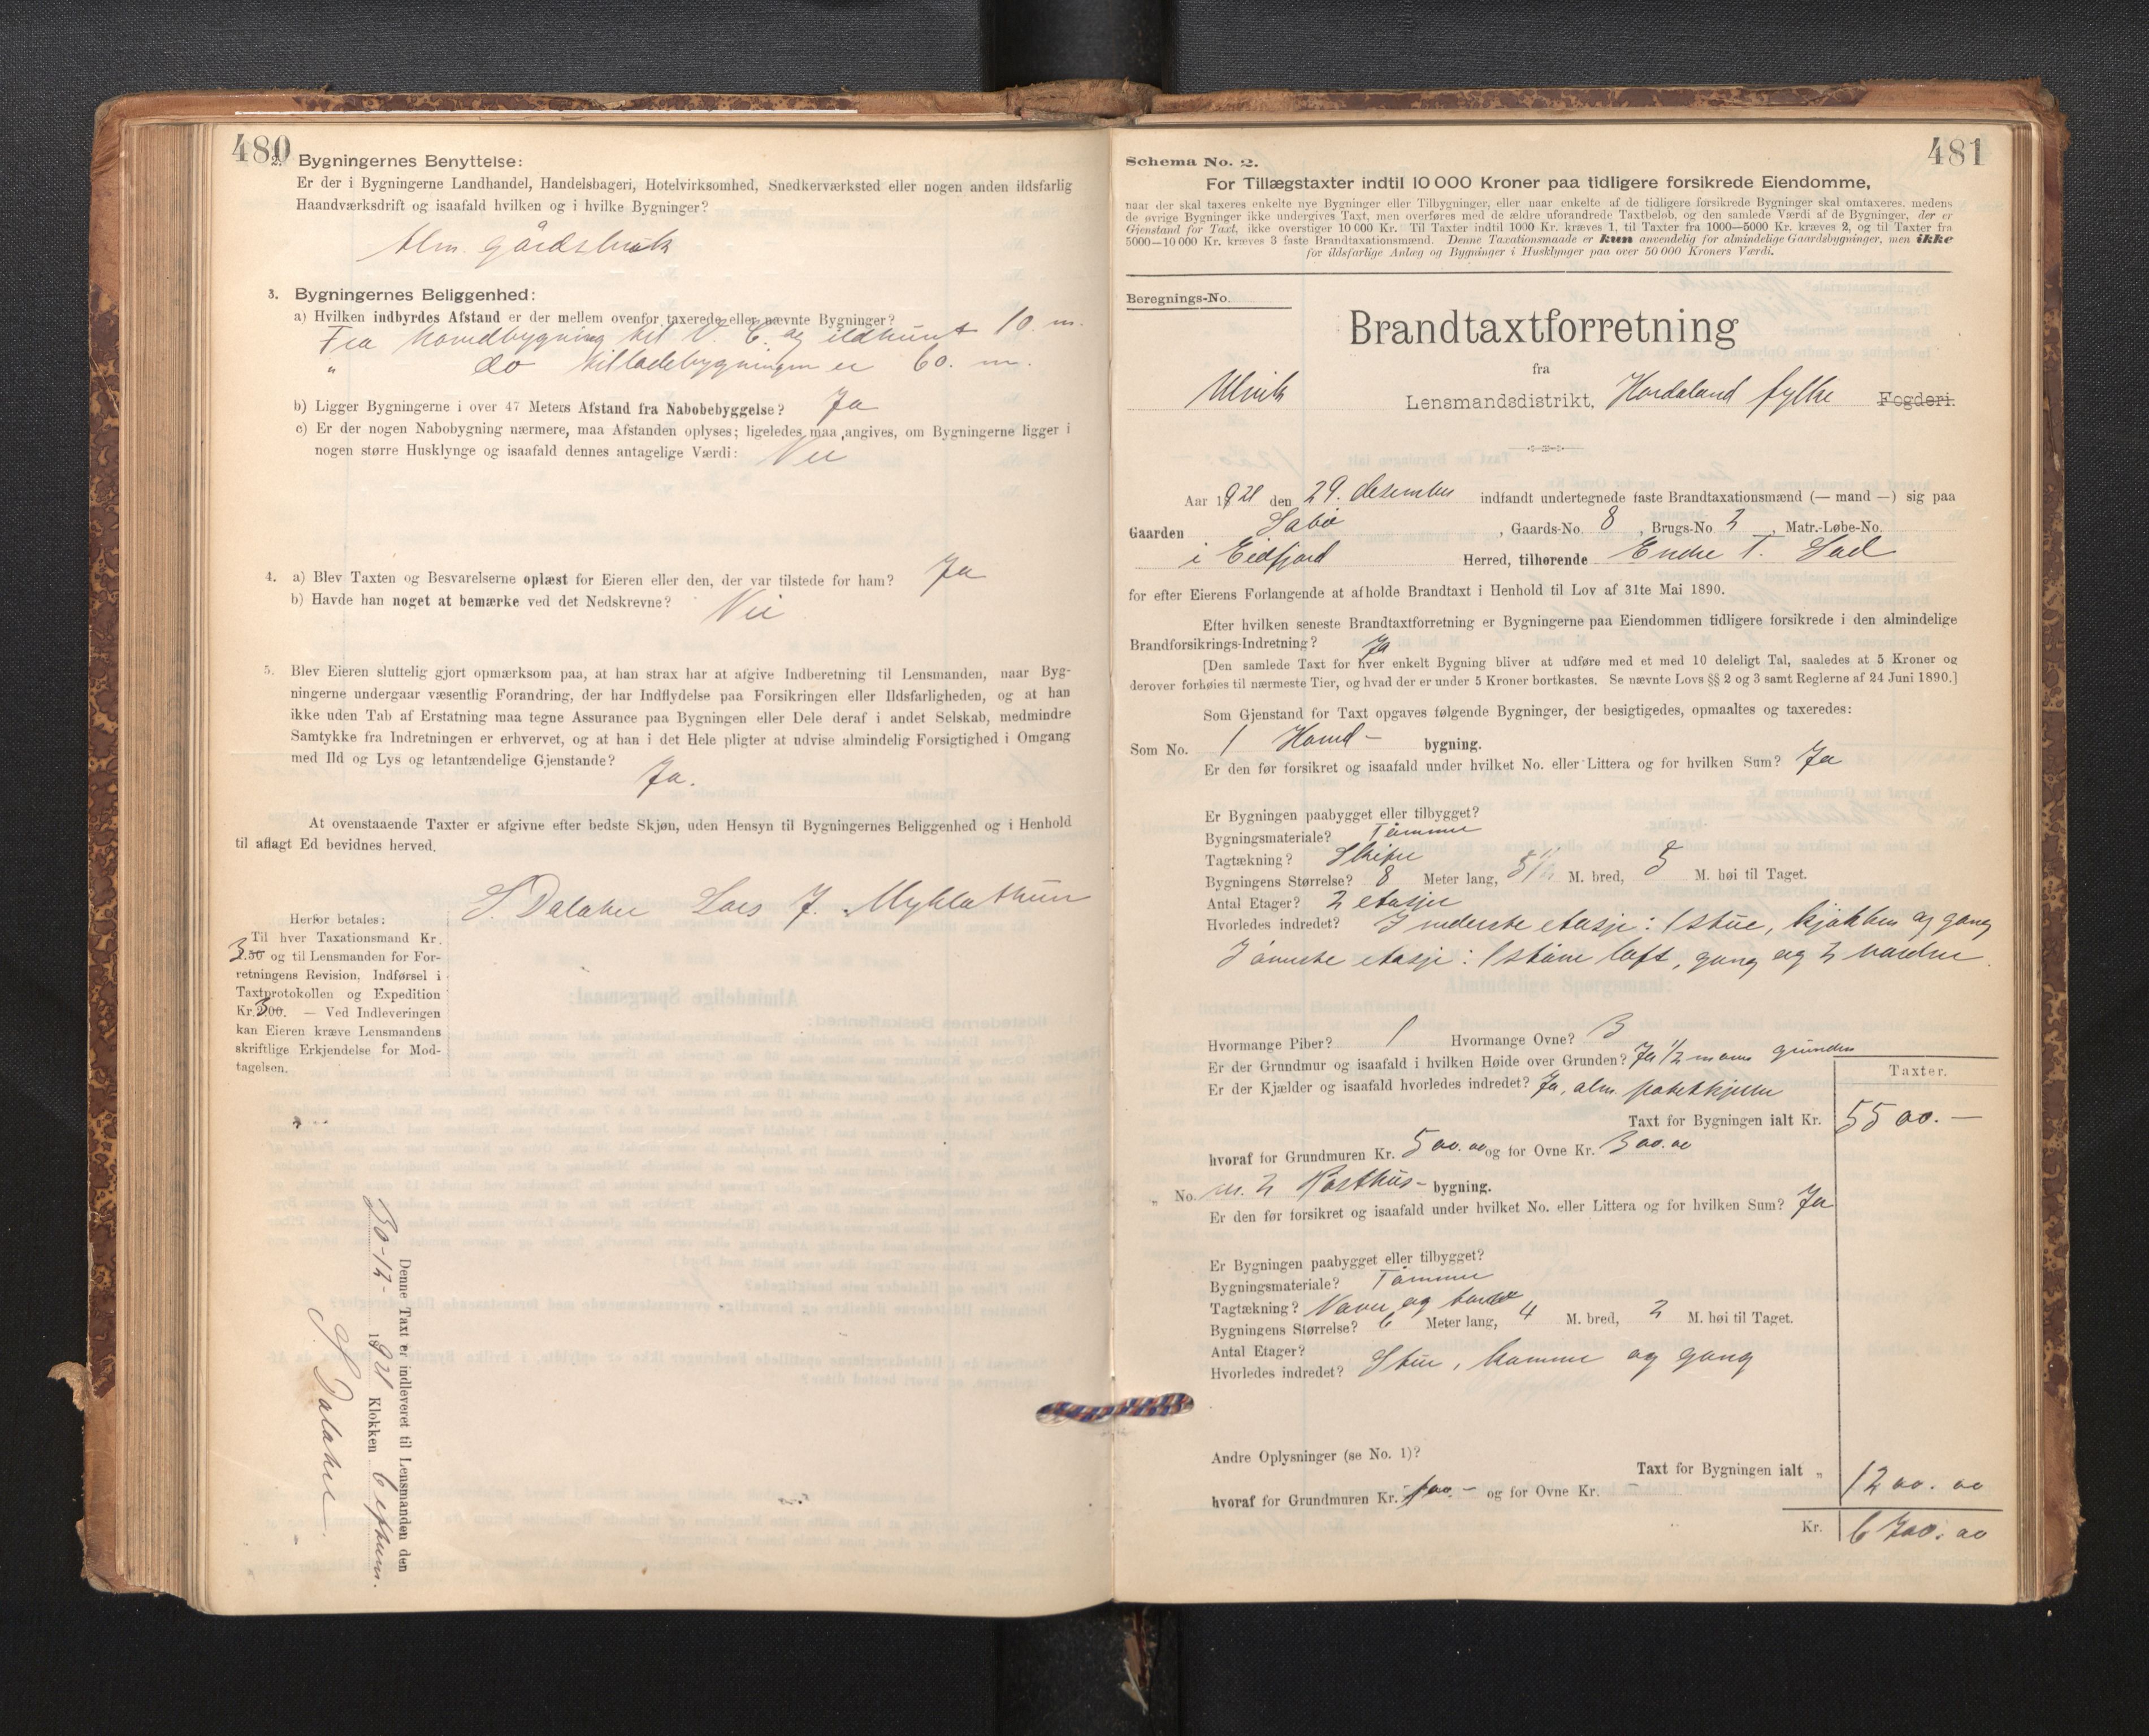 480
2. Bygningernes Benyttelse:
Er der i Bygningerne Landhandel, Handelsbageri, Hotelvirksomhed, Snedkerværksted eller nogen anden ildsfarlig
Haandværksdrift og isaafald hvilken og i hvilke Bygninger?
Alm. gårdsbruk
3. Bygningernes Beliggenhed:
a) Hvilken indbyrdes Afstand er der mellem ovenfor taxerede eller nævnte Bygninger?
Fra hovedbygning til V. C. og ildhunt 10. m.
" do til ladebygningen er 60. m.
b) Ligger Bygningerne i over 47 Meters Afstand fra Nabobebyggelse? Ja
c) Er der nogen Nabobygning nærmere, maa Afstanden oplyses; ligeledes maa angives, om Bygningerne ligger i
nogen større Husklynge og isaafald dennes antagelige Værdi: Nei
4. a) Blev Taxten og Besvarelserne oplæst for Eieren eller den, der var tilstede for ham? Ja
b) Havde han noget at bemærke ved det Nedskrevne? Nei
5. Blev Eieren sluttelig gjort opmærksom paa, at han strax har at afgive Indberetning til Lensmanden, naar Byg-
ningerne undergaar væsentlig Forandring, der har Indflydelse paa Forsikringen eller Ildsfarligheden, og at han
ikke uden Tab af Erstatning maa tegne Assurance paa Bygningen eller Dele deraf i andet Selskab, medmindre
Samtykke fra Indretningen er erhvervet, og at han i det Hele pligter at udvise almindelig Forsigtighed i Omgang
med Ild og Lys og letantændelige Gjenstande?
Ja.
At ovenstaaende Taxter er afgivne efter bedste Skjøn, uden Hensyn til Bygningernes Beliggenhed og i Henhold
til aflagt Ed bevidnes herved.
S. Dalaker Lars J. Myklathun
Herfor betales:
Til hver Taxationsmand Kr.
3.50 og til Lensmanden for For-
retningens Revision, Indførsel i
Taxtprotokollen og Expedition
Kr. 3.00. — Ved Indleveringen
kan Eieren kræve Lensmandens
skriftlige Erkjendelse for Mod-
tagelsen.
Denne Taxt er indleveret til Lensmanden den
30-12- 1921 Klokken 6 efterm.
S Dalaker
481
Schema No. 2.
For Tillægstaxter indtil 10 000 Kroner paa tidligere forsikrede Eiendomme,
naar der skal taxeres enkelte nye Bygninger eller Tilbygninger, eller naar enkelte af de tidligere forsikrede Bygninger skal omtaxeres, medens
de øvrige Bygninger ikke undergives Taxt, men overføres med de ældre uforandrede Taxtbeløb, og den samlede Værdi af de Bygninger, der er
Gjenstand for Taxt, ikke overstiger 10 000 Kr. Til Taxter indtil 1000 Kr. kræves 1, til Taxter fra 1000—5000 Kr. kræves 2, og til Taxter fra
5000—10 000 Kr. kræves 3 faste Brandtaxationsmænd. Denne Taxationsmaade er kun anvendelig for almindelige Gaardsbygninger, men ikke
for ildsfarlige Anlæg og Bygninger i Husklynger paa over 50 000 Kroners Værdi.
Beregnings-No.
Brandtaxtforretning
fra
Ulvik Lensmandsdistrikt, Hordaland fylke Fogderi.
Aar 1921 den 29. desember indfandt undertegnede faste Brandtaxationsmænd (— mand —) sig paa
Gaarden Sæbø, Gaards-No. 8, Brugs-No 2, Matr.-Løbe-No.
i Eidfjord Herred, tilhørende Endre T. Sæd
for efter Eierens Forlangende at afholde Brandtaxt i Henhold til Lov af 31te Mai 1890.
Efter hvilken seneste Brandtaxtforretning er Bygningerne paa Eiendommen tidligere forsikrede i den almindelige
Brandforsikrings-Indretning? Ja
[Den samlede Taxt for hver enkelt Bygning bliver at udføre med et med 10 deleligt Tal, saaledes at 5 Kroner og
derover forhøies til nærmeste Tier, og hvad der er under 5 Kroner bortkastes. Se nævnte Lovs §§ 2 og 3 samt Reglerne af 24 Juni 1890.]
Som Gjenstand for Taxt opgaves følgende Bygninger, der besigtigedes, opmaaltes og taxeredes:
Som No. 1 Hovud- bygning.
Er den før forsikret og isaafald under hvilket No. eller Littera og for hvilken Sum? Ja
Er Bygningen paabygget eller tilbygget?
Bygningsmateriale? Tømmer
Tagtækning? Skifer
Bygningens Størrelse? 8 Meter lang, 5 1/2 M. bred, 5 M. høi til Taget.
Antal Etager? 2 etasjer
Hvorledes indredet? I nederste etasje: 1 stue, kjøkken og gang
I øverste etasje: 1 større loft, gang og 2 mindre.
Hvormange Piber? 1 Hvormange Ovne? 3
Er der Grundmur og isaafald i hvilken Høide over Grunden? Ja 1/2 m over grunden
Er der Kjælder og isaafald hvorledes indredet? Ja, alm. potetkjeller
Taxter.
Taxt for Bygningen ialt Kr. 5500.—
hvoraf for Grundmuren Kr. 500.00 og for Ovne Kr. 300.00
" No. nr. 2 Kårhus- bygning.
Er den før forsikret og isaafald under hvilket No. eller Littera og for hvilken Sum? Ja
Er Bygningen paabygget eller tilbygget?
Bygningsmateriale? Tømmer
Tagtækning? Never og torv
Bygningens Størrelse? 6 Meter lang, 4 M. bred, 2 M. høi til Taget.
Antal Etager?
Hvorledes indredet? Stue, kammer og gang
Andre Oplysninger (se No. 1)?
Taxt for Bygningen ialt " 1200.00
hvoraf for Grundmuren Kr. 100.- og for Ovne Kr. —
Kr. 6700.00